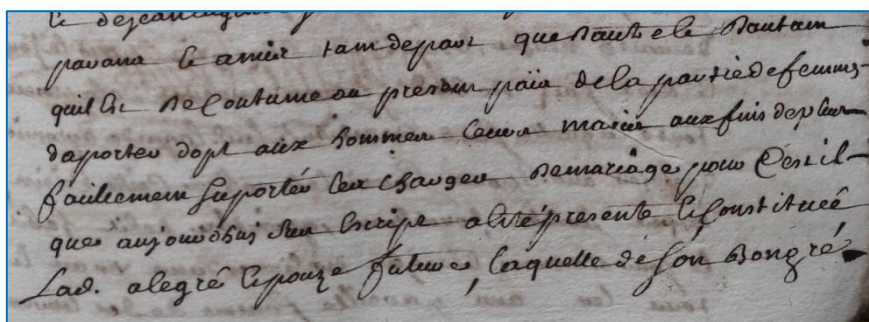 parans & amis tam de part que dautre & dautam
quil Est de Coutume au presan païs de la partie de femmes
daporter dopt aux hommes leurs maris aux fins de plus
facillement suporter les charges de mariage pour Ce Est il
que aujourdhui sur Escript a Esté presente & Constituée
Lad. alegre Epouze future, laquelle de son bon gré